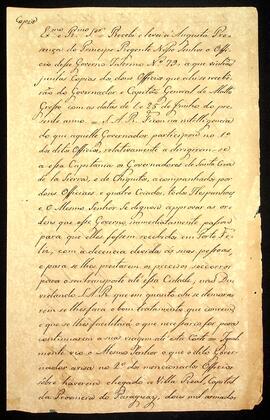 Copia
Ex.mo e R.mo Snr. Recebi e levei á Augusta Pre-
sença do Principe Regente Nosso Senhor o Offi-
cio desse Governo Interino N.º 72, a que vinhão
juntas Copias dos dous Officios que elle recebêo
do Governador e Capitão General de Matto
Grosso com as datas de e 25 de Junho do pre-
sente anno = S. A. R. Ficou na intelligencia
do que aquelle Governador participou no 1.º
dos ditos Officios, relativamente a dirigirem-se
a essa Capitania os Governadores de Santa Cruz
de la Sierra, e de Chiquitos, acompanhados por
dous Officiaes e quatro Criados, todos Hespanhoes
e O Mesmo Senhor Se dignou approvar as or-
dens que esse Governo immediatamente passou
para que elles fossem recebidos em Porto Fe-
liz, com a decencia devida ás suas pessoas,
e para se lhes prestarem os precisos soccorros
para o seu transporte até essa Cidade, não Du-
vidando S. A. R. que em quanto ahi se demorarem
se lhes fará o bom tratamento que convem
e que se lhes facilitará o que necessario for para
continuarem a sua viagem até esta Corte = Igual-
mente vio o Mesmo Senhor o que o dito Gover-
nador avisa no 2.º dos mencionados Officios
sobre haverem chegado a Villa Real, Capital
da Provincia do Paraguay, dous mil armados